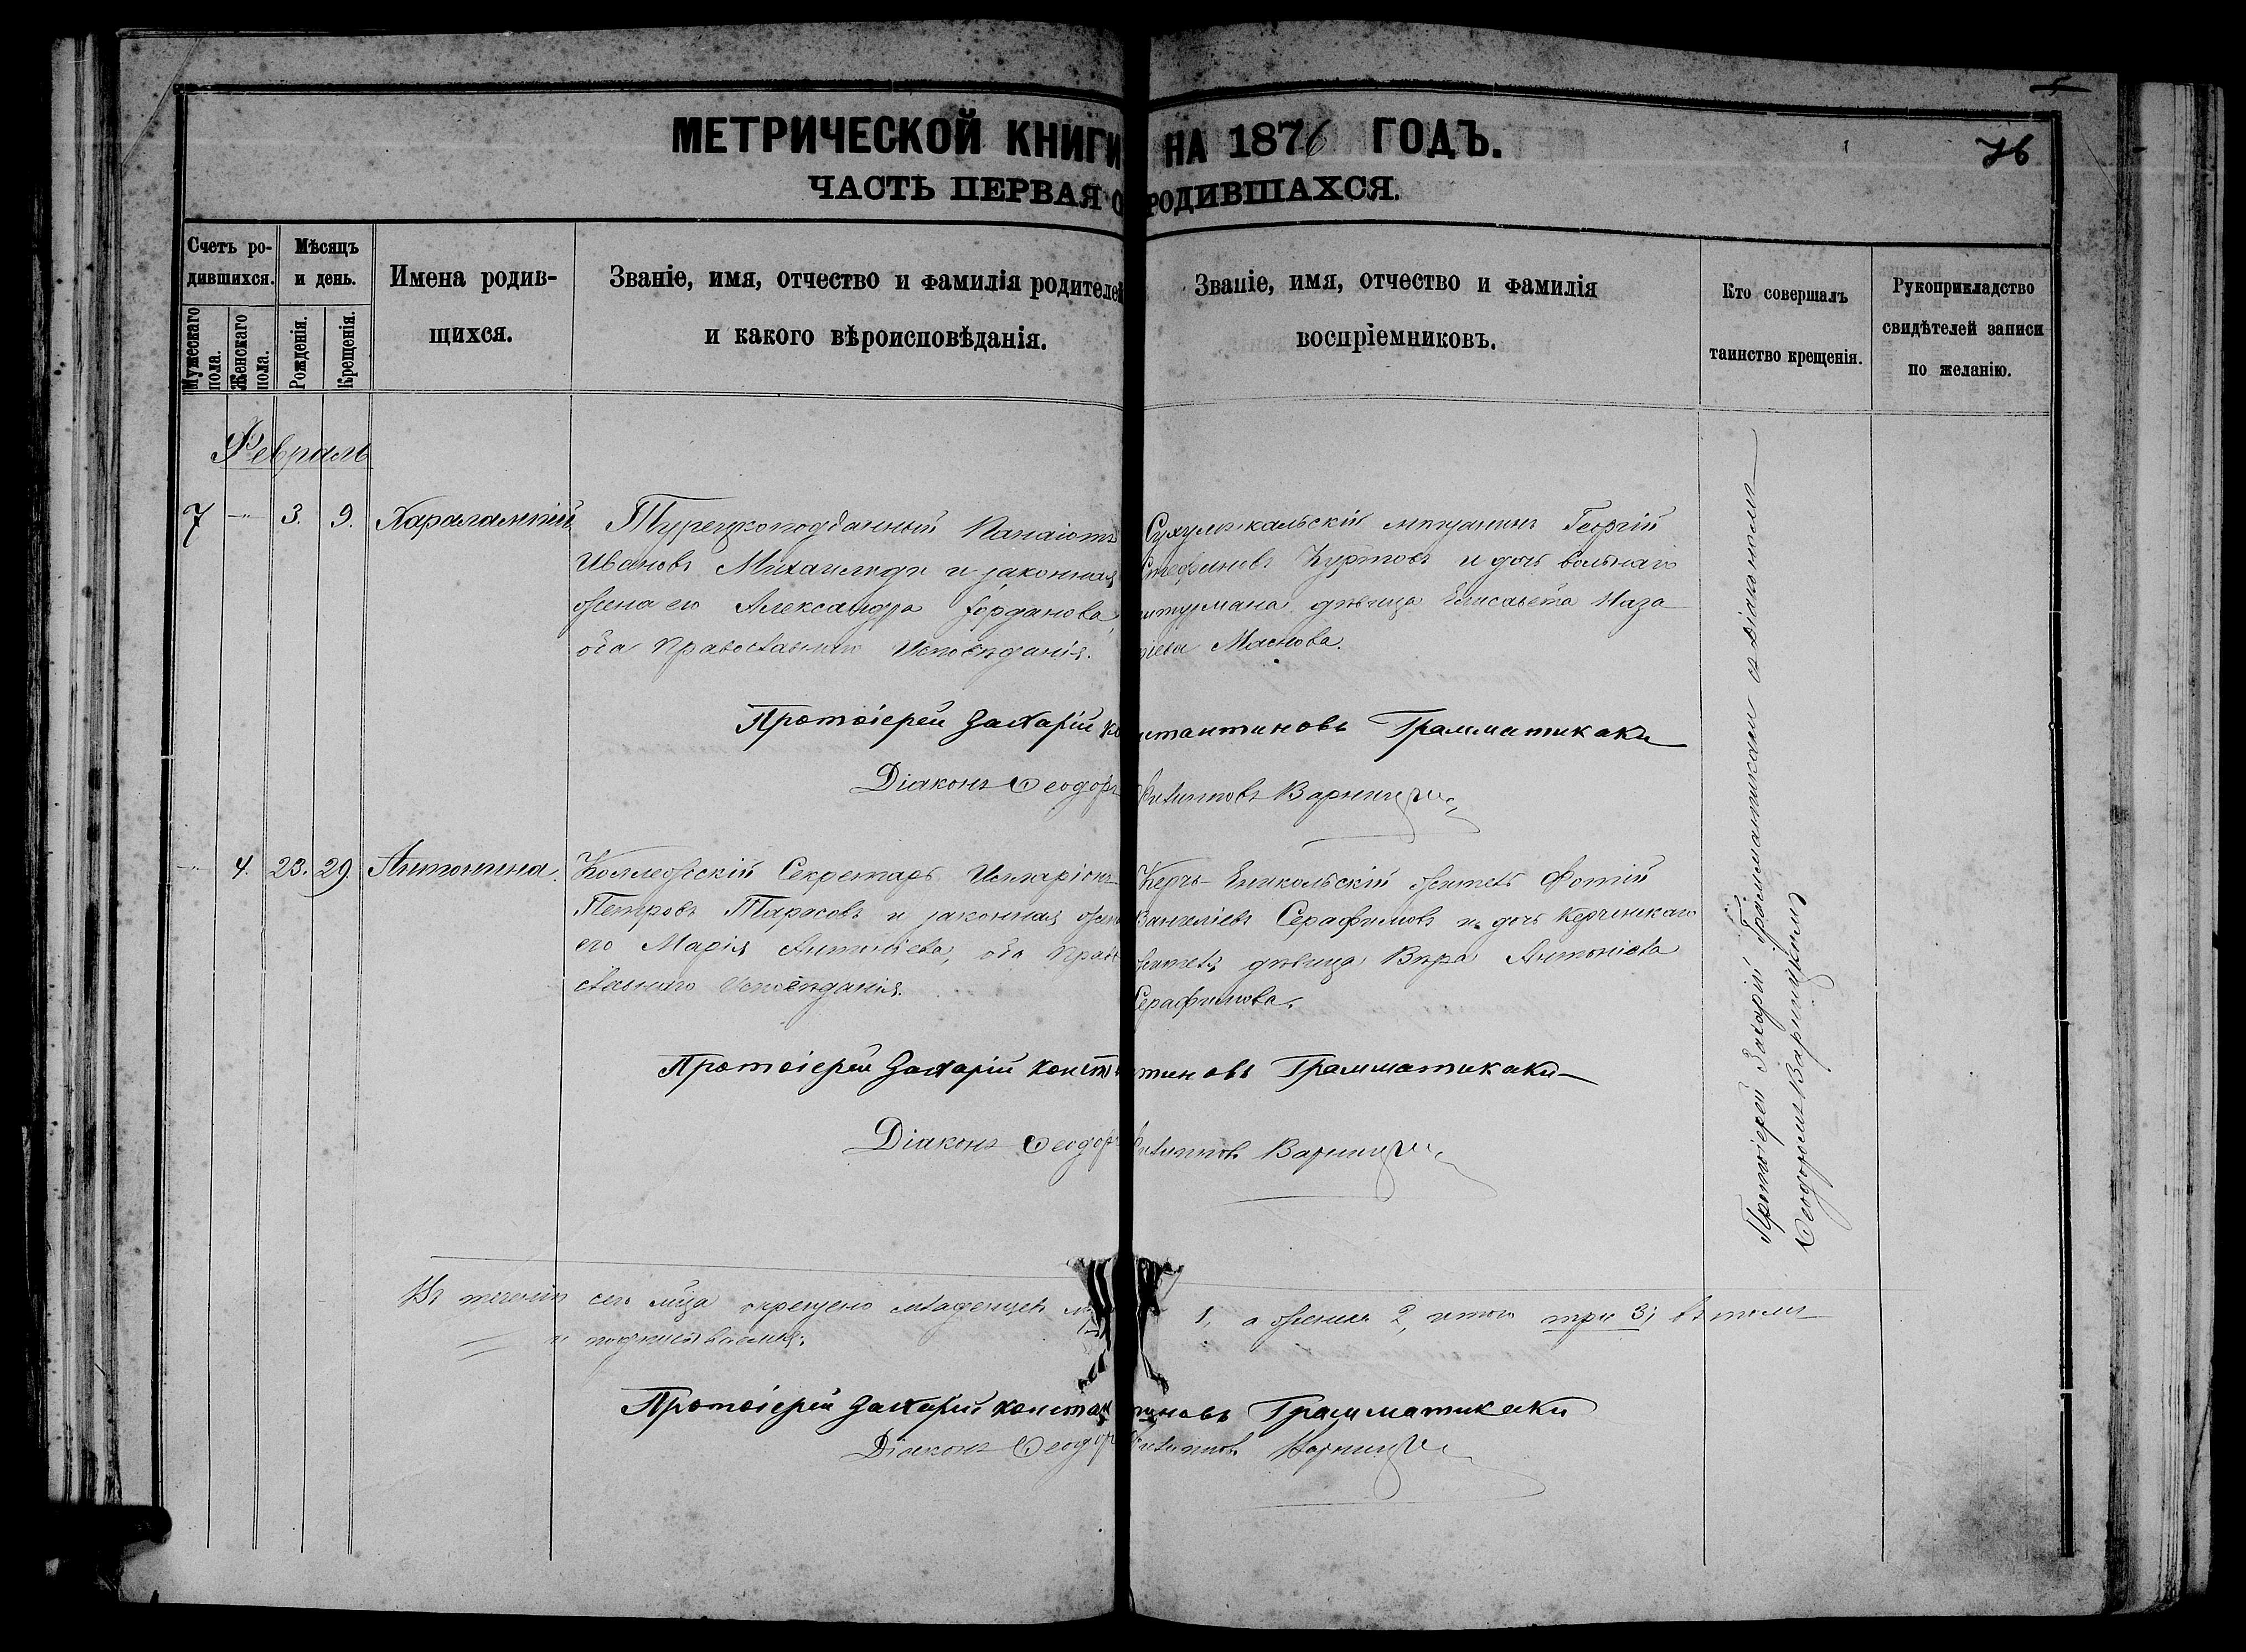 МЕТРИЧЕСКОЙ КНИГИ НА 1876 ГОДЪ.
76
ЧАСТЬ ПЕРВАЯ О РОДИВШАХСЯ.
Счетъ ро-
дившихся.
Мужескаго пола.
Женскаго пола.
Мѣсяцъ
и день.
Рожденія.
Крещенія.
Имена родив-
щихся.
Званіе, имя, отчество и фамилія родителей
и какого вѣроисповѣданія.
Званіе, имя, отчество и фамилія
воспріемниковъ.
Кто совершалъ
таинство крещенія.
Рукоприкладство
свидѣтелей записи
по желанію.
Февраль
7 — 3. 9. Харалампій
Турецкоподданный Панаіотъ
Ивановъ Михаилиди и законная
жена его Александра Іорданова,
оба Православнаго Исповѣданія.
Сухумъ-кальскій мѣщанинъ Георгій
Стефановъ Куртовъ и дочь вольнаго
штурмана дѣвица Елисавета Наза-
ріева Маснова.
Протоіерей Захарій Константиновъ Грамматикаки
Діаконъ Ѳеодоръ Филипповъ Варницкій
4. 23. 29. Антонина.
Коллежскій Секретарь Иларіонъ
Петровъ Тарасовъ и законная жена
его Марія Антоніева, оба Право-
славнаго Исповѣданія.
Керчь-Еникольскій житель Фотій
Вангеліевъ Серафимовъ и дочь Керченскаго
жителя дѣвица Вѣра Антоніева
Серафимова.
Протоіерей Захарій Константиновъ Грамматикаки
Діаконъ Ѳеодоръ Филипповъ Варницкій
Протоіерей Захарій Грамматикаки съ Діакономъ
Ѳеодоромъ Варницкимъ
Въ теченіи сего м-ца окрещено младенцевъ 1, а женска 2, итого три 3; въ томъ
и подписываемся:
Протоіерей Захарій Константиновъ Грамматикаки
Діаконъ Ѳеодоръ Филипповъ Варницкій